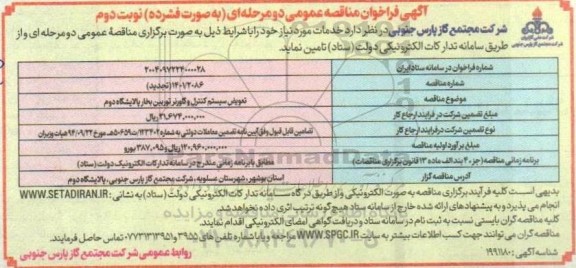 آگهی فراخوان مناقصه عمومی دو مرحله ای (به صورت فشرده) نوبت دوم
شرکت مجتمع گاز پارس جنوبی در نظر دارد خدمات مورد نیاز خود را با شرایط ذیل به صورت برگزاری مناقصه عمومی دو مرحله ای و از
طریق سامانه تدارکات الکترونیکی دولت (ستاد) تامین نماید.
شماره فراخوان در سامانه ستاد ایران
شماره مناقصه (تجدید)
موضوع مناقصه تعویض سیستم کنترل و گاورنر توربین بخار پالایشگاه دوم
مبلغ تضمین شرکت در فرایند ارجاع کار ریال
نوع تضمین شرکت در فرایند ارجاع کار تضامین قابل قبول وفق آیین نامه تضمین معاملات دولتی به شماره هیات وزیران
مبلغ برآورد اولیه مناقصه ریال یورو
برنامه زمانی مناقصه (جزء ۲ بند الف ماده ۱۳ قانون برگزاری مناقصات) مطابق با برنامه زمانی مندرج در سامانه تدارکات الکترونیک دولت (ستاد)
آدرس مناقصه گزار استان بوشهر، شهرستان عسلویه، شرکت مجتمع گاز پارس جنوبی، پالایشگاه دوم
بدیهی است کلیه فرآیند برگزاری مناقصه به صورت الکترونیکی و از طریق درگاه سامانه تدارکات الکترونیکی دولت (ستاد) به نشانی: WWW.SETADIRAN.IR
انجام می پذیرد و به پیشنهاد های ارائه شده خارج از سامانه ستاد هیچ گونه ترتیب اثری داده نخواهد شد.
کلیه مناقصه گران بایستی نسبت به ثبت نام در سامانه ستاد و دریافت گواهی امضای الکترونیکی اقدام نمایند.
مناقصه گران می توانند جهت کسب اطلاعات بیشتر به سایت WWW.SPGC.IR مراجعه و یا با شماره تلفن های تماس حاصل فرمایند.
شناسه آگهی: ۱۹۹۱۱۸۰ روابط عمومی شرکت مجتمع گاز پارس جنوبی